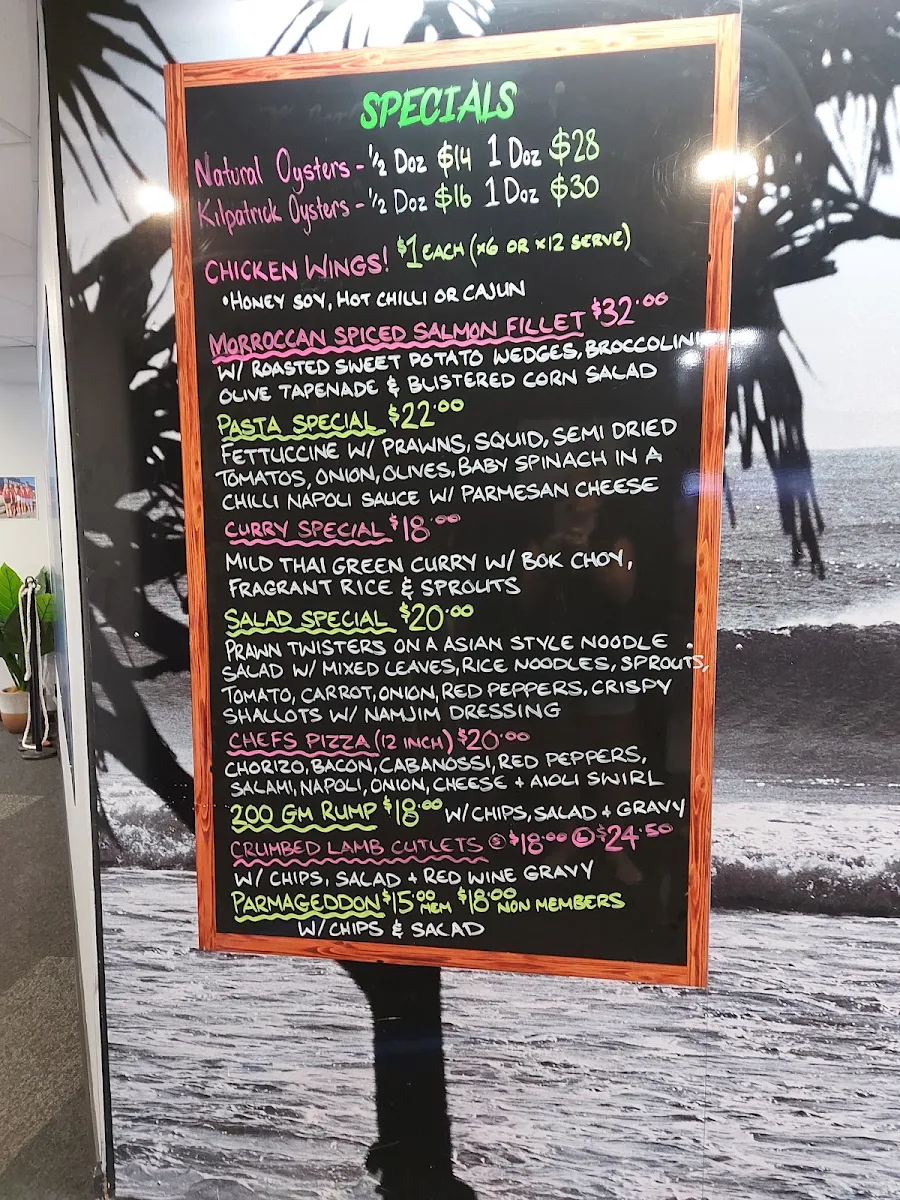 SPECIALS
Natural Oysters - 1/2 Doz $14 1 Doz $28
Kilpatrick Oysters - 1/2 Doz $16 1 Doz $30
CHICKEN WINGS! $1 EACH (x6 OR x12 SERVE)
•HONEY SOY, HOT CHILLI OR CAJUN
MORROCCAN SPICED SALMON FILLET $32.00
W/ ROASTED SWEET POTATO WEDGES, BROCCOLINI
OLIVE TAPENADE & BLISTERED CORN SALAD
PASTA SPECIAL $22.00
FETTUCCINE W/ PRAWNS, SQUID, SEMI DRIED
TOMATOS, ONION, OLIVES, BABY SPINACH IN A
CHILLI NAPOLI SAUCE W/ PARMESAN CHEESE
CURRY SPECIAL $18.00
MILD THAI GREEN CURRY W/ BOK CHOY,
FRAGRANT RICE & SPROUTS
SALAD SPECIAL $20.00
PRAWN TWISTERS ON A ASIAN STYLE NOODLE
SALAD W/ MIXED LEAVES, RICE NOODLES, SPROUTS,
TOMATO, CARROT, ONION, RED PEPPERS, CRISPY
SHALLOTS W/ NAMJIM DRESSING
CHEFS PIZZA (12 INCH) $20.00
CHORIZO, BACON, CABANOSSI, RED PEPPERS,
SALAMI, NAPOLI, ONION, CHEESE + AIOLI SWIRL
200 GM RUMP $18.00 W/ CHIPS, SALAD + GRAVY
CRUMBED LAMB CUTLETS Ⓢ $18.00 Ⓛ $24.50
W/ CHIPS, SALAD + RED WINE GRAVY
PARMAGEDDON $15.00 MEM $18.00 NON MEMBERS
W/ CHIPS & SALAD